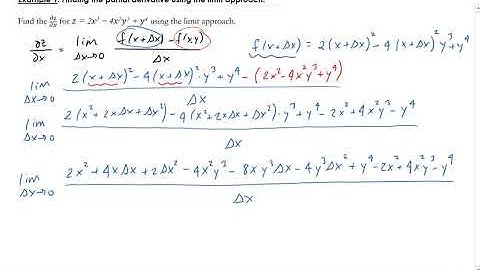 Example 1: Finding the partial derivative using the limit approach.
Find the ∂z/∂x for z = 2x² − 4x²y³ + y⁴ using the limit approach.
∂z/∂x = lim Δx→0 (f(x+Δx) − f(x,y))/Δx
f(x+Δx) = 2(x+Δx)² − 4(x+Δx)²y³ + y⁴
lim Δx→0 (2(x+Δx)² − 4(x+Δx)²·y³ + y⁴ − (2x² − 4x²y³ + y⁴))/Δx
lim Δx→0 (2(x² + 2xΔx + Δx²) − 4(x² + 2xΔx + Δx²)·y³ + y⁴ − 2x² + 4x²y³ − y⁴)/Δx
lim Δx→0 (2x² + 4xΔx + 2Δx² − 4x²y³ − 8xy³Δx − 4y³Δx² + y⁴ − 2x² + 4x²y³ − y⁴)/Δx